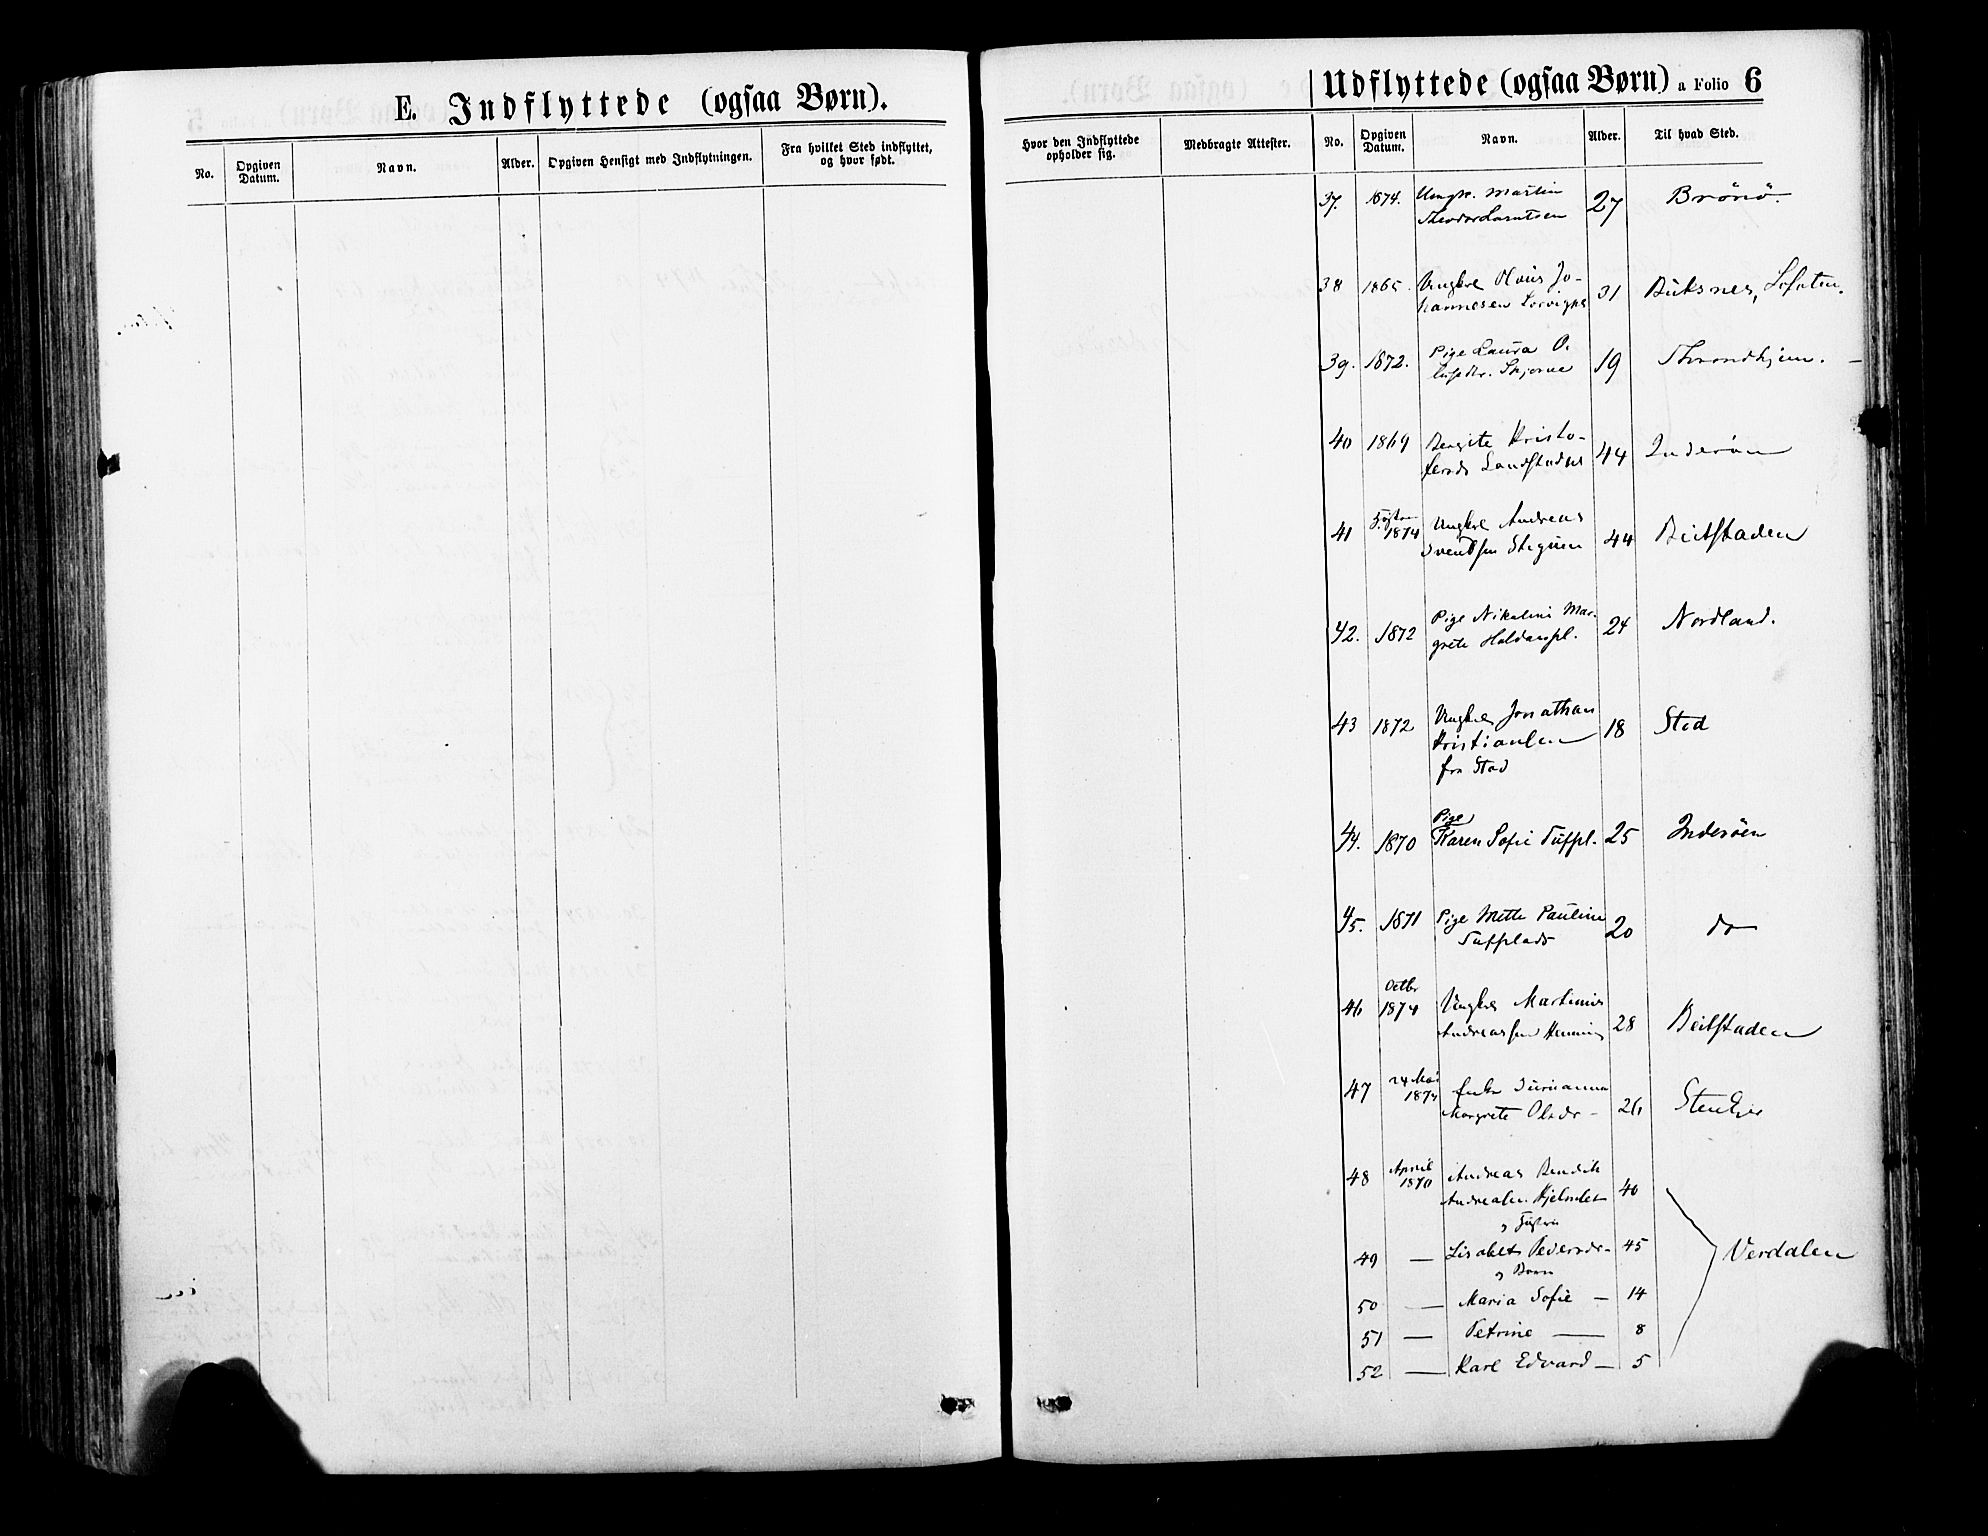 E. Indflyttede (ogsaa Børn).
No.
Opgiven Datum.
Navn.
Alder.
Opgiven Hensigt med Indflytningen.
Fra hvilket Sted indflyttet, og hvor født.
Udflyttede (ogsaa Børn) a Folio 6
Hvor den Indflyttede opholder sig.
Medbragte Attester.
No.
Opgiven Datum.
Navn.
Alder.
Til hvad Sted.
37. 1874. Ungk. Martin 27 Brönö.
Theodor Larntsen
38 1865. Ungkrl Olaus Jo- 31 Buksnes, Lofoten.
hannesen
39. 1872. Pige Laura O. 19 Throndhjem.
40 1869 Beregite Kristo- 44 Inderöen
fersdr
41 1874 Ungkrl Andreas 44 Beitstaden
Sventsen
42. 1872 Pige Nikoline Mar- 24 Nordland.
grete Haldanspl.
43 1872 Ungkrl Jonathan 18 Stod
Kristiansen
fra Stod
Pige
44. 1870 Karen Sofie Tufpl. 25 Inderöen
45. 1871 Pige Mette Pauline 20 do
Tufplads
Octbr
46 1874 Ungkrl Martinus 28 Beitstaden
Andreassen Henning
24 Mai
47 1874 Enke 26 Stenkjer
Margrete Olsdr -
April
48 1870 Andreas Bendik 40
Andreasen
g Hustru
49 — Lisabet Pedersdr - 45 Verdalen
g Børn
50 — Maria Sofie — 14
51 — Petrine — 8
52 — Karl Edvard — 5